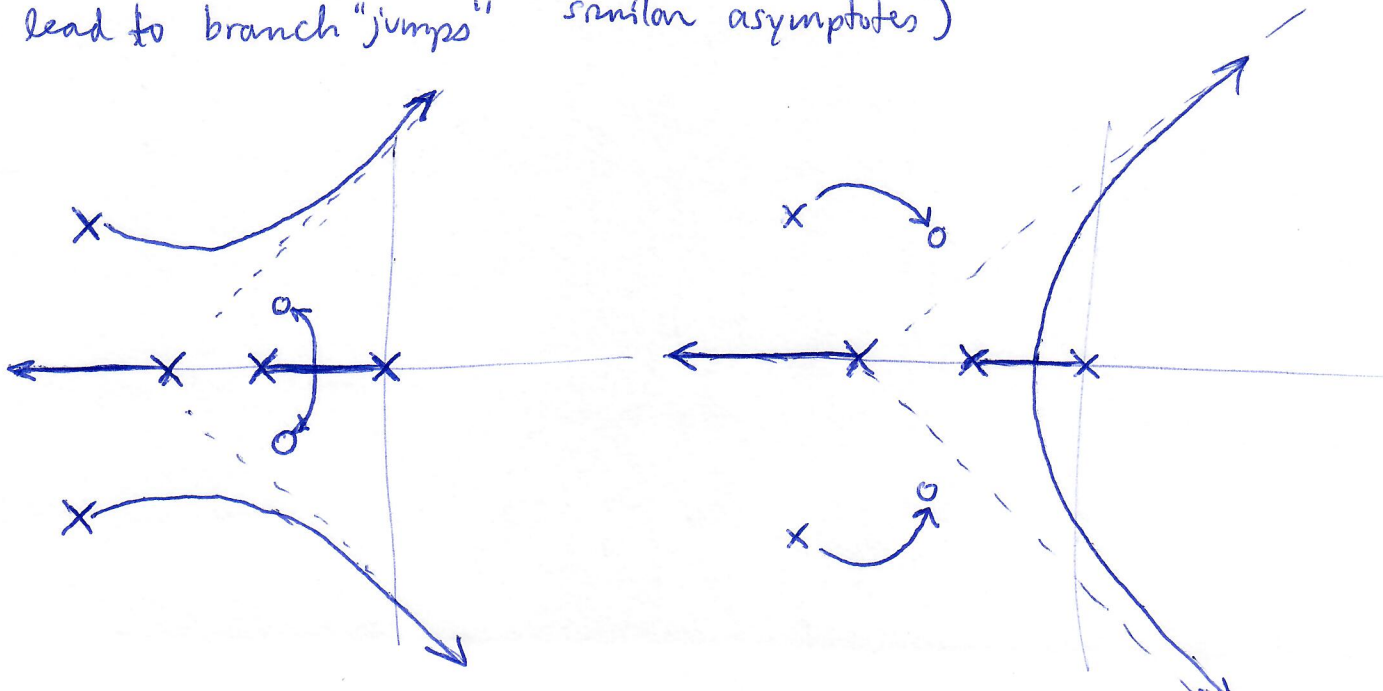 lead to branch "jumps" similar asymptotes)